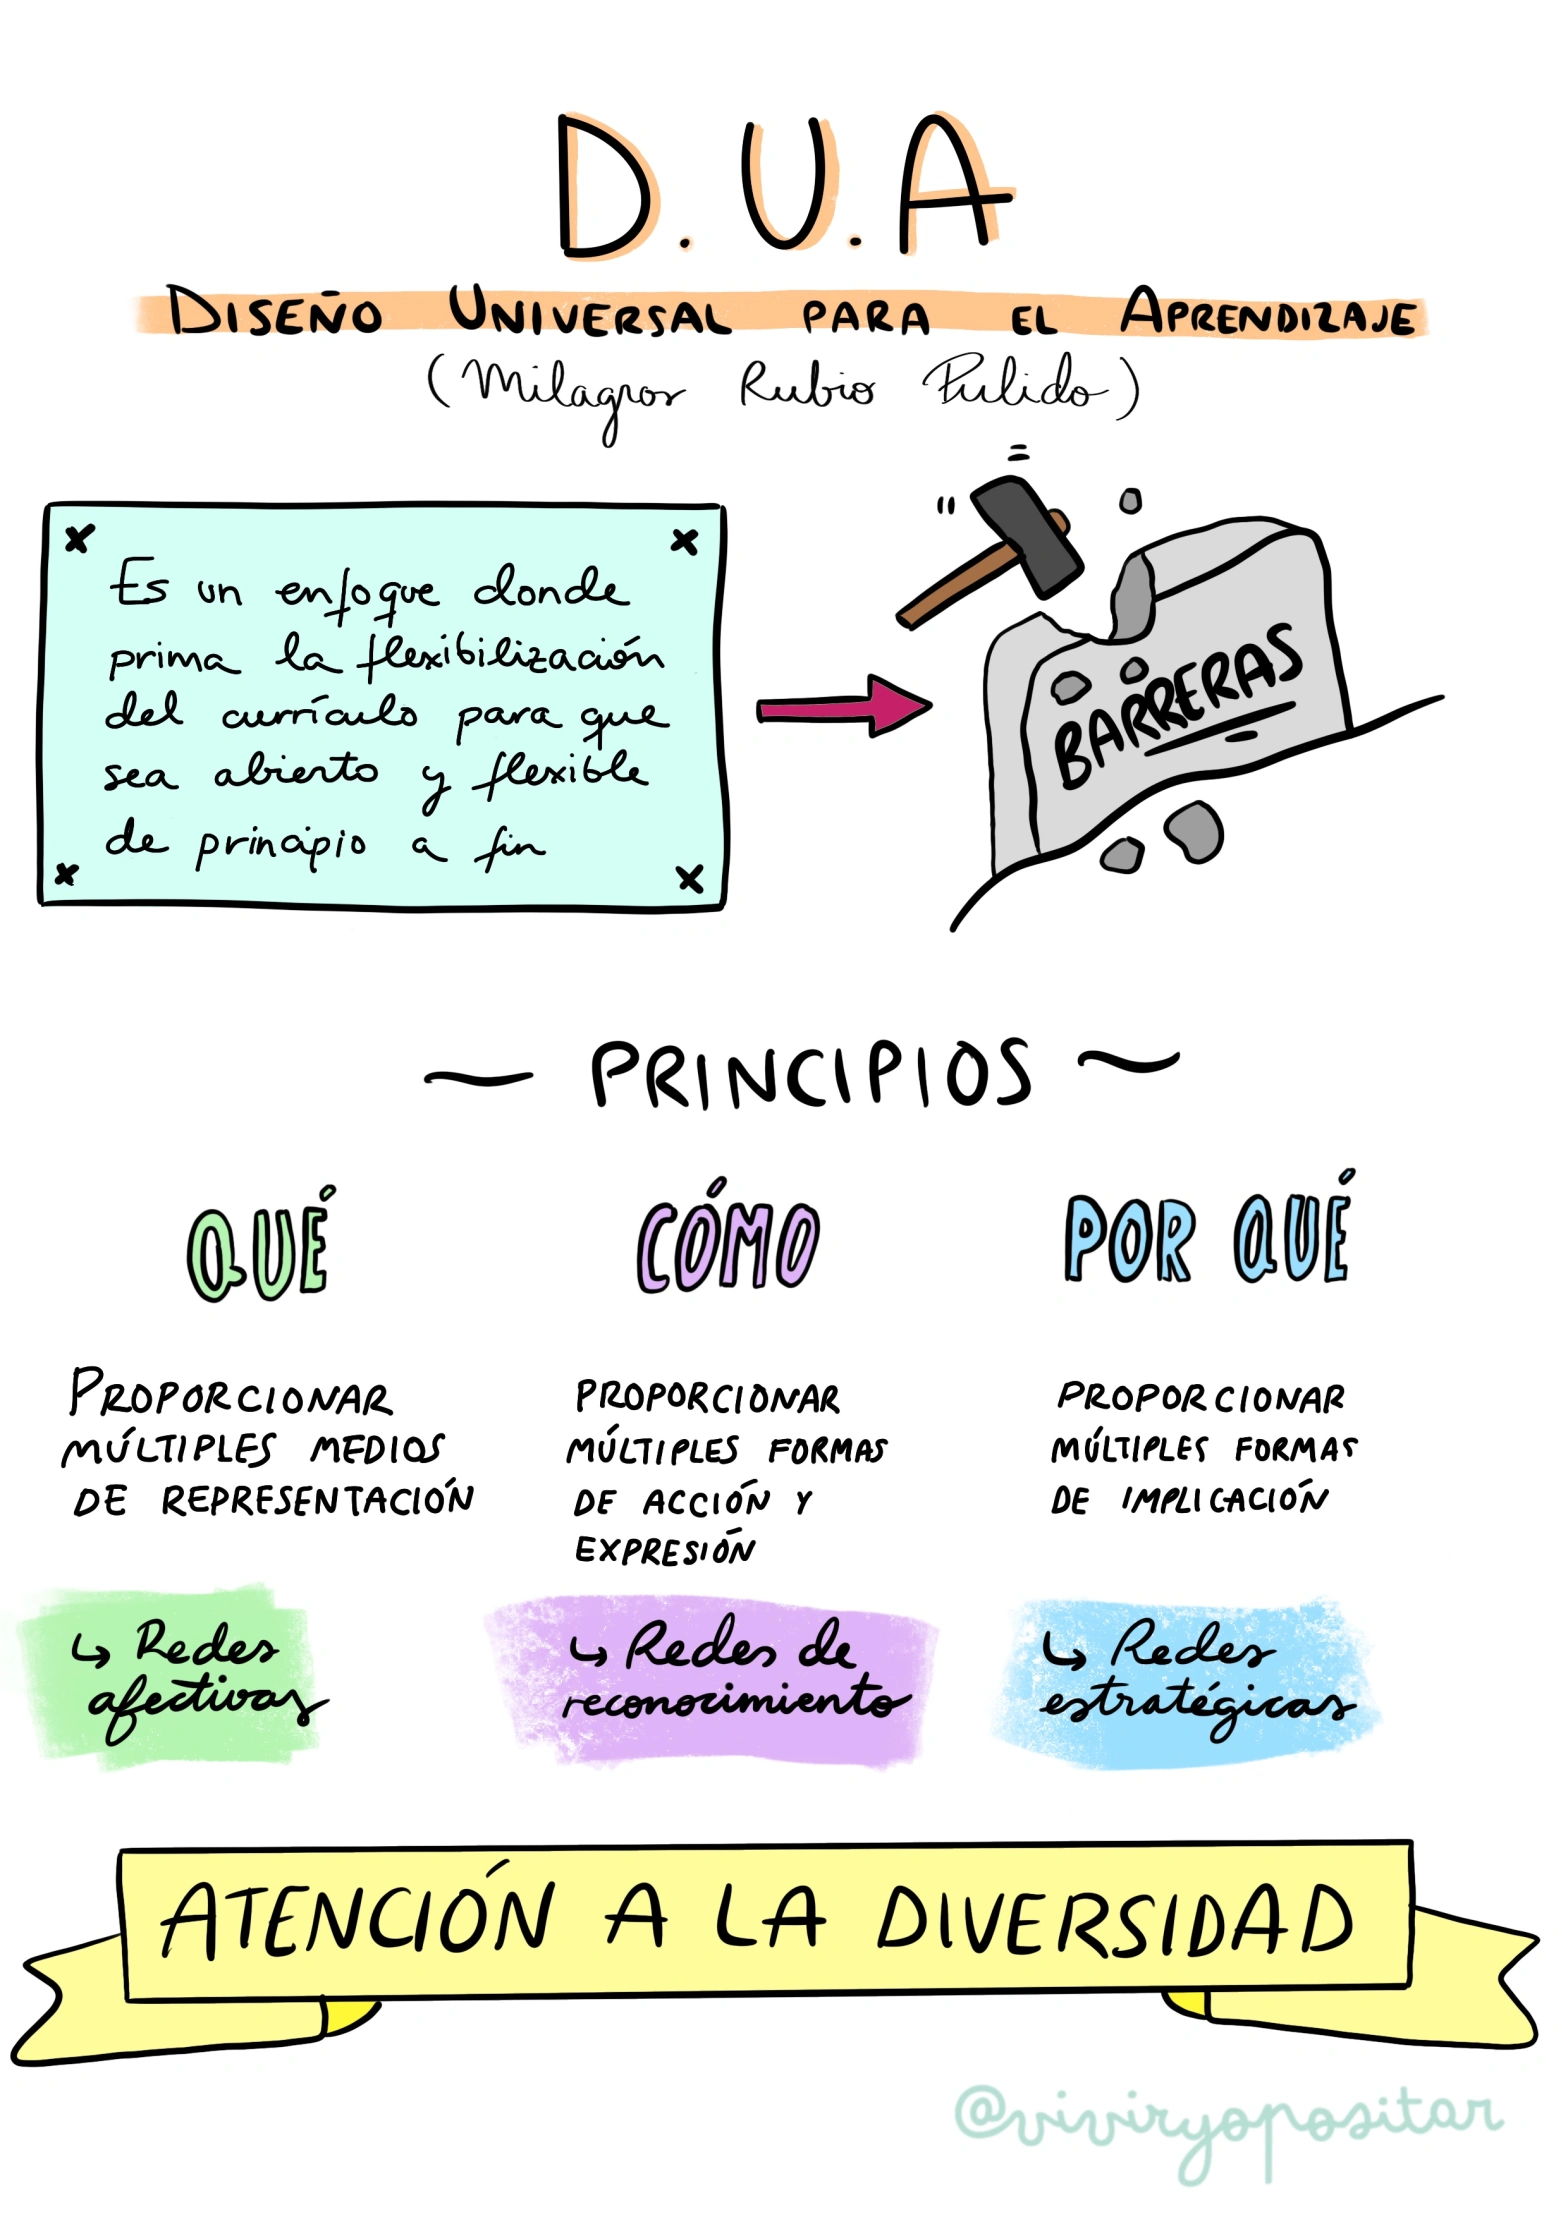 D.U.A
DISEÑO UNIVERSAL PARA EL APRENDIZAJE
(Milagros Rubio Pulido)
Es un enfoque donde
prima la flexibilización
del currículo para que
sea abierto y flexible
de principio a fin
BARRERAS
PRINCIPIOS
QUÉ
PROPORCIONAR
MÚLTIPLES MEDIOS
DE REPRESENTACIÓN
↳ Redes
afectivas
CÓMO
PROPORCIONAR
MÚLTIPLES FORMAS
DE ACCIÓN Y
EXPRESIÓN
↳ Redes de
reconocimiento
POR QUÉ
PROPORCIONAR
MÚLTIPLES FORMAS
DE IMPLICACIÓN
↳ Redes
estratégicas
ATENCIÓN A LA DIVERSIDAD
@viviryopositar